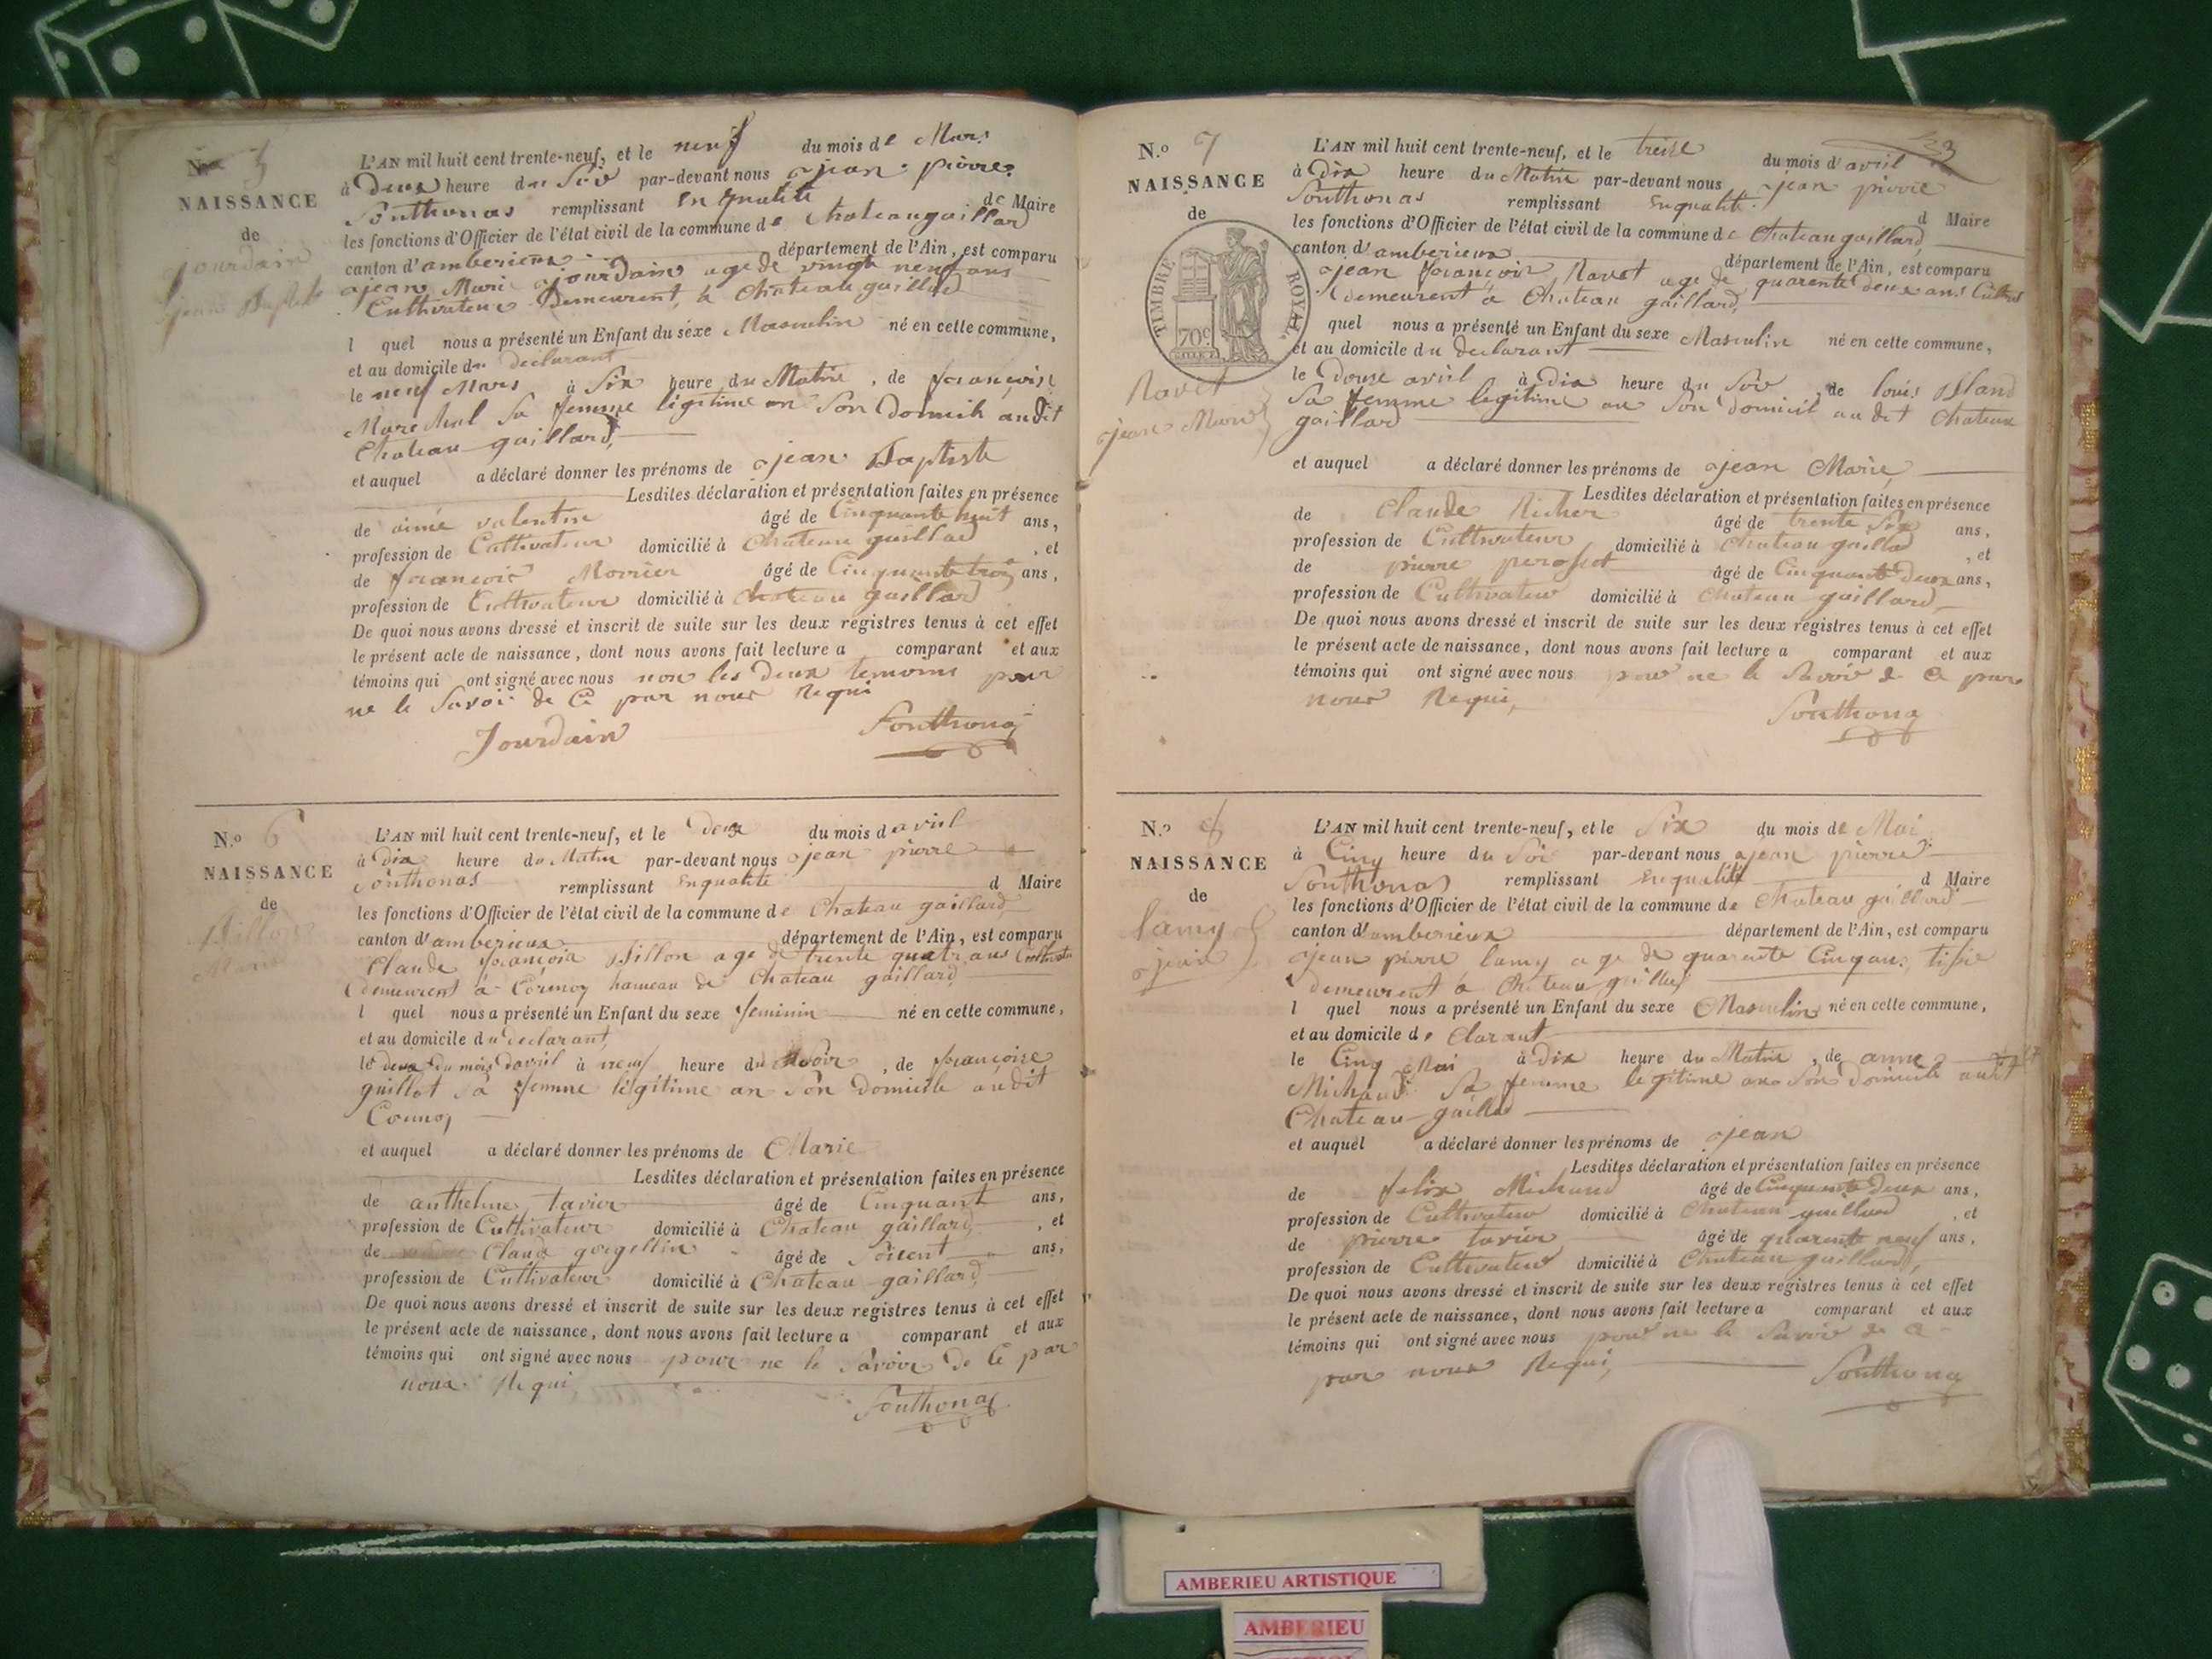 N.o 5
NAISSANCE
de
jourdain
jean Baptiste
L'AN mil huit cent trente-neuf, et le neuf du mois de Mars
à Deux heure du Soir par-devant nous jean pierre
Fonthonas remplissant En qualité de Maire
les fonctions d'Officier de l'état civil de la commune de Chateaugaillard
canton d'amberieux département de l'Ain, est comparu
jean Marie jourdain age de vingt neuf ans
Cultivateur Demeurent à Chateau gaillard
l quel nous a présenté un Enfant du séxe Masculin né en cette commune,
et au domicile du declarant
le neuf Mars à Six heure du Matin, de françoise
Marechal Sa femme légitime en Son Domicile audit
Chateau gaillard,
et auquel a déclaré donner les prénoms de jean Baptiste
Lesdites déclaration et présentation faites en présence
de aimé valentin âgé de Cinquante huit ans,
profession de Cultivateur domicilié à Chateau gaillard, et
de françois Morrier âgé de Cinquante trois ans,
profession de Cultivateur domicilié à Chateau gaillard
De quoi nous avons dressé et inscrit de suite sur les deux registres tenus à cet effet
le présent acte de naissance, dont nous avons fait lecture a comparant et aux
témoins qui ont signé avec nous non les deux temoins pour
ne le Savoir de Ce par nous Requi
Jourdain Fonthonas
N.o 6
NAISSANCE
de
Billon
Marie
L'AN mil huit cent trente-neuf, et le deux du mois d avril
à Dix heure du Matin par-devant nous jean pierre
Fonthonas remplissant En qualité d Maire
les fonctions d'Officier de l'état civil de la commune de Chateau gaillard
canton d'amberieux département de l'Ain, est comparu
Claude françois Billon age de trente quatr ans Cultivateur
demeurent a Cormoz hameau de Chateau gaillard
l quel nous a présenté un Enfant du sexe feminin né en cette commune,
et au domicile du declarant,
le deux du mois d'avril à neuf heure du Soir, de françoise
guillot sa femme légitime an son Domicile audit
Cormoz
et auquel a déclaré donner les prénoms de Marie
Lesdites déclaration et présentation faites en présence
de anthelme tavier âgé de Cinquant ans,
profession de Cultivateur domicilié à Chateau gaillard, et
de Claude gorgellin âgé de Soisent ans,
profession de Cultivateur domicilié à Chateau gaillard
De quoi nous avons dressé et inscrit de suite sur les deux registres tenus à cet effet
le présent acte de naissance, dont nous avons fait lecture a comparant et aux
témoins qui ont signé avec nous pour ne le Savoir de Ce par
nous Requi
Fonthonas
N.o 7
NAISSANCE
de
TIMBRE ROYAL
70c
Ravet
jean Marie
L'AN mil huit cent trente-neuf, et le treise du mois d'avril
à Dix heure du Matin par-devant nous jean pierre
Fonthonas remplissant En qualité d Maire
les fonctions d'Officier de l'état civil de la commune de Chateau gaillard
canton d'amberieux département de l'Ain, est comparu
jean françois Ravet age de quarente deux ans
demeurent à Chateau gaillard,
quel nous a présenté un Enfant du sexe Masculin né en cette commune,
et au domicile du declarant
le Douse avril à Dix heure du Soir, de louis Bland
Sa femme legitime an Son domicil audit Chateau
gaillard
et auquel a déclaré donner les prénoms de jean Marie,
Lesdites déclaration et présentation faites en présence
de Claude Richer âgé de trente Six ans,
profession de Cultivateur domicilié à Chateau gaillard, et
de pierre perosset âgé de Cinquante Deux ans,
profession de Cultivateur domicilié à Chateau gaillard,
De quoi nous avons dressé et inscrit de suite sur les deux registres tenus à cet effet
le présent acte de naissance, dont nous avons fait lecture a comparant et aux
témoins qui ont signé avec nous pour ne le Savoir de Ce par
nous Requi,
Fonthonas
N.o 8
NAISSANCE
de
lamy
jean
L'AN mil huit cent trente-neuf, et le Six du mois de Mai
à Cinq heure du Soir par-devant nous jean pierre
Fonthonas remplissant En qualité d Maire
les fonctions d'Officier de l'état civil de la commune de Chateau gaillard
canton d'amberieux département de l'Ain, est comparu
jean pierre lamy age de quarente Cinq ans,
demeurent à Chateau gaillard
l quel nous a présenté un Enfant du sexe Masculin né en cette commune,
et au domicile de Clarant
le Cinq Mai à Dix heure du Matin, de anne
Michaud Sa femme legitime an Son domicile audit
Chateau gaillard
et auquel a déclaré donner les prénoms de jean
Lesdites déclaration et présentation faites en présence
de felix Michaud âgé de Cinquante Deux ans,
profession de Cultivateur domicilié à Chateau gaillard, et
de pierre tavier âgé de quarente neuf ans,
profession de Cultivateur domicilié à Chateau gaillard,
De quoi nous avons dressé et inscrit de suite sur les deux registres tenus à cet effet
le présent acte de naissance, dont nous avons fait lecture a comparant et aux
témoins qui ont signé avec nous pour ne le Savoir de Ce
par nous Requi,
Fonthonas
AMBERIEU ARTISTIQUE
AMBERIEU